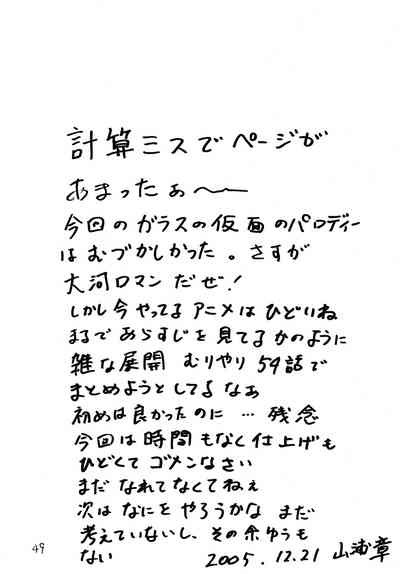 計算ミスでページが
あまったぁ〜
今回のガラスの仮面のパロディー
はむづかしかった。さすが
大河ロマンだぜ!
しかし今やってるアニメはひどいね
まるであらすじを見てるかのように
雑な展開 むりやり54話で
まとめようとしてるなあ
初めは良かったのに…残念
今回は時間もなく仕上げも
ひどくてゴメンなさい
まだなれてなくてねぇ
次はなにをやろうかな まだ
考えていないし、その余ゆうも
ない
2005.12.21 山浦章
49